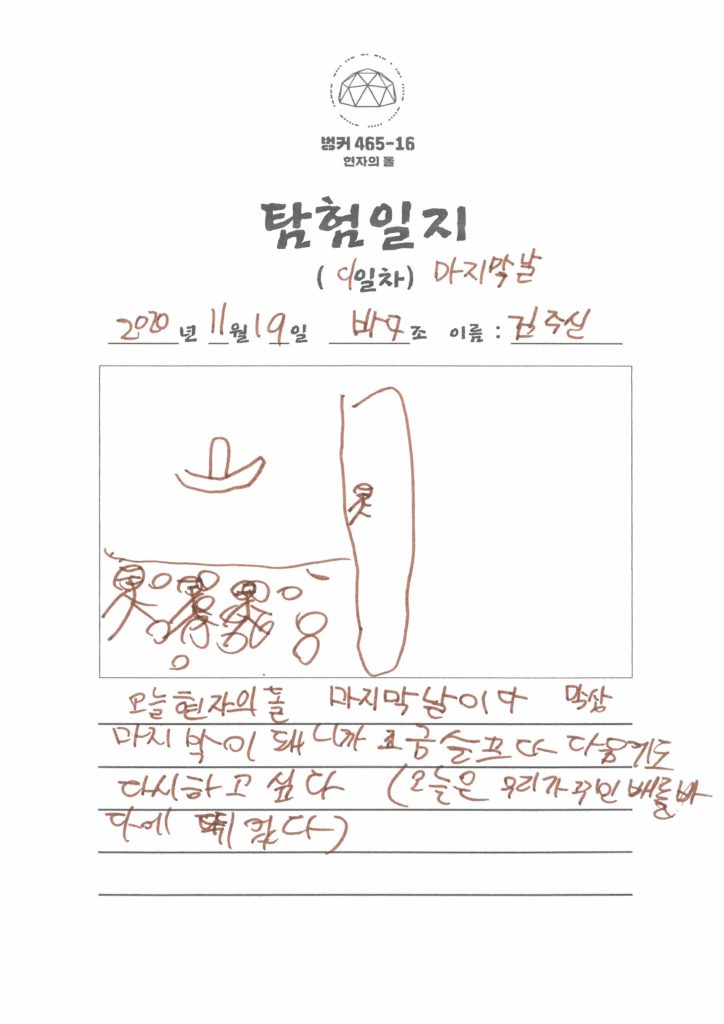 벙커 465-16
현자의 돌
탐험일지
(9일차) 마지막날
2020년 11월 19일 바다조 이름 :
오늘 현자의 돌 마지막날이다 막상
마지막이 돼니까 조금 슬프다 다음기도
다시하고 싶다 (오늘은 우리가 꾸민 배를 바
다에 띄었다)